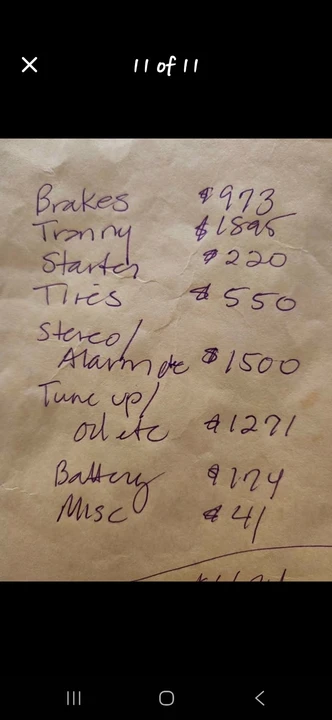 11 of 11
Brakes $973
Tranny $1895
Starter $220
Tires $550
Stereo/
Alarm etc $1500
Tune up/
oil etc $1271
Battery $174
Misc $41